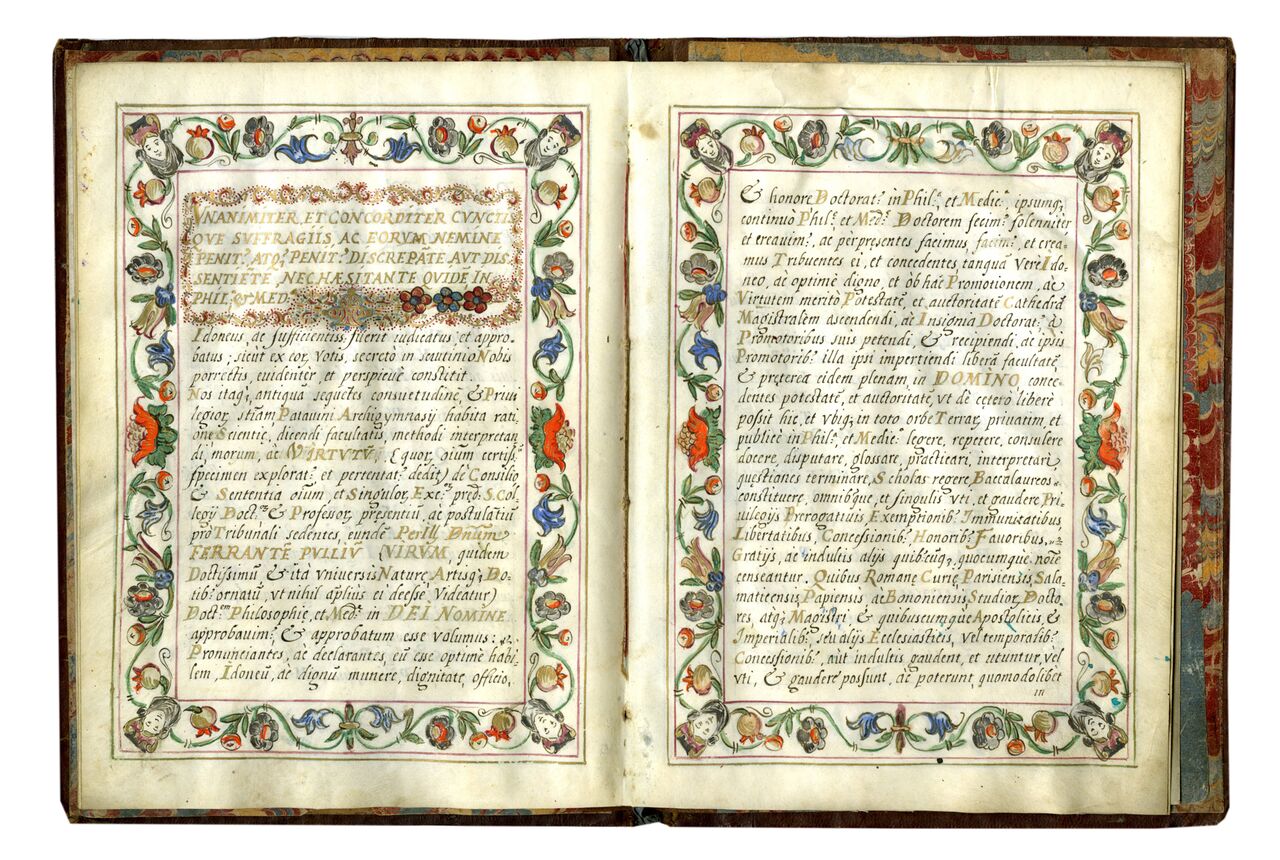 VNANIMITER, ET CONCORDITER CVNCTIS
QVE SVFFRAGIIS, AC EORVM NEMINE
PENIT.s ATQ; PENIT.s DISCREPĀTE AVT DIS-
SENTIĒTE, NEC HÆSITANTE QVIDĒ IN
PHIL.a & MED.
Idoneus, ac sufficiens fuerit iudicatus, et appro-
batus; sicut ex eor. Votis, secreto in scutinio Nobis
porrectis, euidenter, et perspicue constitit.
Nos itaq;, antiqua sequētes consuetudinē, & Priui
legior, Patauini Archigymnasij habita rati
one Scientiē, dicendi facultatis, methodi interpretan
di, morum, ac VIRTVTŪ, (quor, oium certiss.
specimen explorat, et dedit) de Consilio
& Sententia oium, et Singulor, Exc. pred. S. Col
legij Doct. & Professor, presentiū, ac postulatiū
pro Tribunali sedentes, eundē Perill. Dnum
FERRANTĒ PVLLIŪ (VIRVM, quidem
Doctissimū, & ità vniversis Naturē, Artisq; Do-
tib. ornatū, vt nihil aplius ei deesse Videatur)
Doct.em Philosophiē, et Med.e in DEI NOMINE
approbauim., & approbatum esse volumus:
Pronunciantes, ac declarantes, eū esse optimè habi-
lem, Idoneū, ac dignū munere, dignitate, officio,
& honore Doctorat. in Phil.a, et Medic.a ipsumq;
continuò Phil.e et Med.e Doctorem fecim. solenniter
et creauim., ac per presentes facimus facim., et crea-
mus Tribuentes ei, et concedentes tanquā verè Ido-
neo, ac optimè digno, et ob hāc Promotionem, ac
Virtutem meritò Potestatē, et auctoritatē Cathedrā
Magistralem ascendendi, ac Insignia Doctorat. à
Promotoribus suis petendi, & recipiendi, ac ipsis
Promotorib. illa ipsi impertiendi liberā facultatē,
& preterea eidem plenam, in DOMINO, conce-
dentes potestatē, et auctoritatē, vt de cetero liberè
possit hic, et vbiq; in toto orbe Terrar, priuatim, et
publicè in Phil.a, et Medic.a legere, repetere, consulere
docere, disputare, glossare, practicari, interpretari
questiones terminare, Scholas regere, Baccalaureos
constituere, omnibque, et singulis vti, et gaudere Pri
uilegijs Prerogatiuis Exemptionib. Immunitatibus
Libertatibus, Concessionib. Honorib. Fauoribus,
Gratijs, ac indultis alijs quib.cuq;, quocumque noīe
censeantur. Quibus Romanē Curiē, Parisiensis, Sala-
maticensis, Papiensis, ac Bononiensis, Studior, Docto
res, atq; Magistri, & quibuscumque Apostolicis, &
Imperialib. seu alijs Ecclesiasticis, vel temporalib.
Concessionib., aut indultis gaudent, et vtuntur, vel
vti, & gaudere possunt, ac poterunt, quomodolibet
in